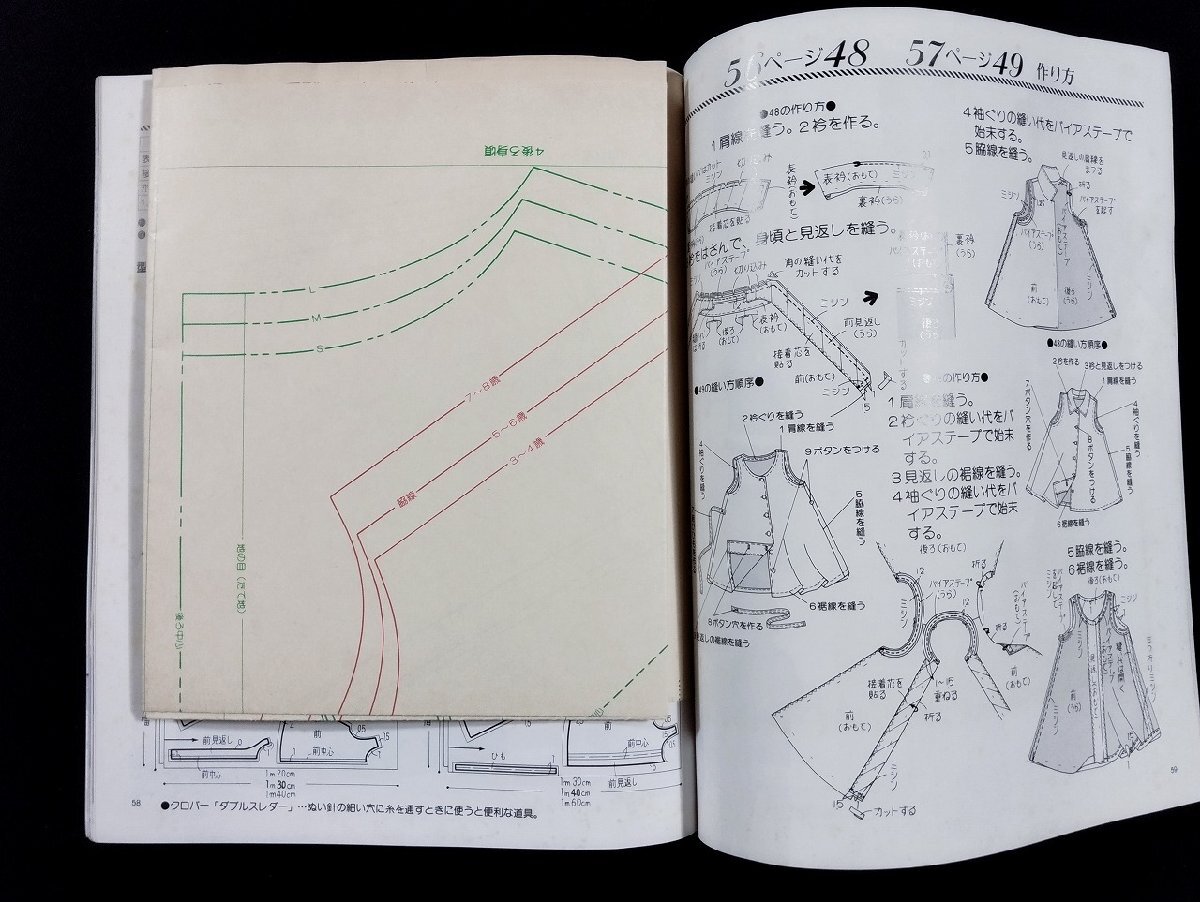 4後ろ身頃
L
M
S
7~8歳
5~6歳
3~4歳
脇線
後ろ中心
地の目(たて地)
前見返し
前中心
前中心
1m30cm
1m40cm
前中心
ひも
前見返し
1m30cm
1m40cm
1m60cm
58
●クロバー「ダブルスレダー」…ぬい針の細い穴に糸を通すときに使うと便利な道具。
56ページ48
57ページ49
作り方
●48の作り方●
1肩線を縫う。2衿を作る。
表衿(おもて)
ミシン
裏衿(うら)
をはさんで、身頃と見返しを縫う。
バイアステープ
(うら)
切り込み
角の縫い代を
カットする
ミシン
表衿
(おもて)
後ろ
(おもて)
前見返し
(うら)
接着芯を
貼る
前(おもて)
ミシン
裏衿
(うら)
カットする
4袖ぐりの縫い代をバイアステープで
始末する。
5脇線を縫う。
見返しの肩線を
まつる
折る
ミシン
バイアステープ
(うら)
ミシン
前
(おもて)
後ろ
(うら)
●48の縫い方順序●
2衿を作る
3衿と見返しをつける
1肩線を縫う
7ボタン穴を作る
4袖ぐりを縫う
8ボタンをつける
5脇線を縫う
6裾線を縫う
●49の縫い方順序●
2衿ぐりを縫う
1肩線を縫う
9ボタンをつける
4袖ぐりを縫う
5脇線を縫う
6裾線を縫う
8ボタン穴を作る
見返しの裾線を縫う
の作り方●
1肩線を縫う。
2衿ぐりの縫い代をバ
イアステープで始末
する。
3見返しの裾線を縫う。
4袖ぐりの縫い代をバ
イアステープで始末
する。
後ろ(おもて)
折る
12
バイアステープ
(うら)
ミシン
12
バイアステープ
(おもて)
折る
前
(おもて)
接着芯を
貼る
1~15
重ねる
折る
前
(おもて)
ミシン
15
カットする
5脇線を縫う。
6裾線を縫う。
後ろ(おもて)
ミシン
ミシン
前
(うら)
縫い代は開く
1
59